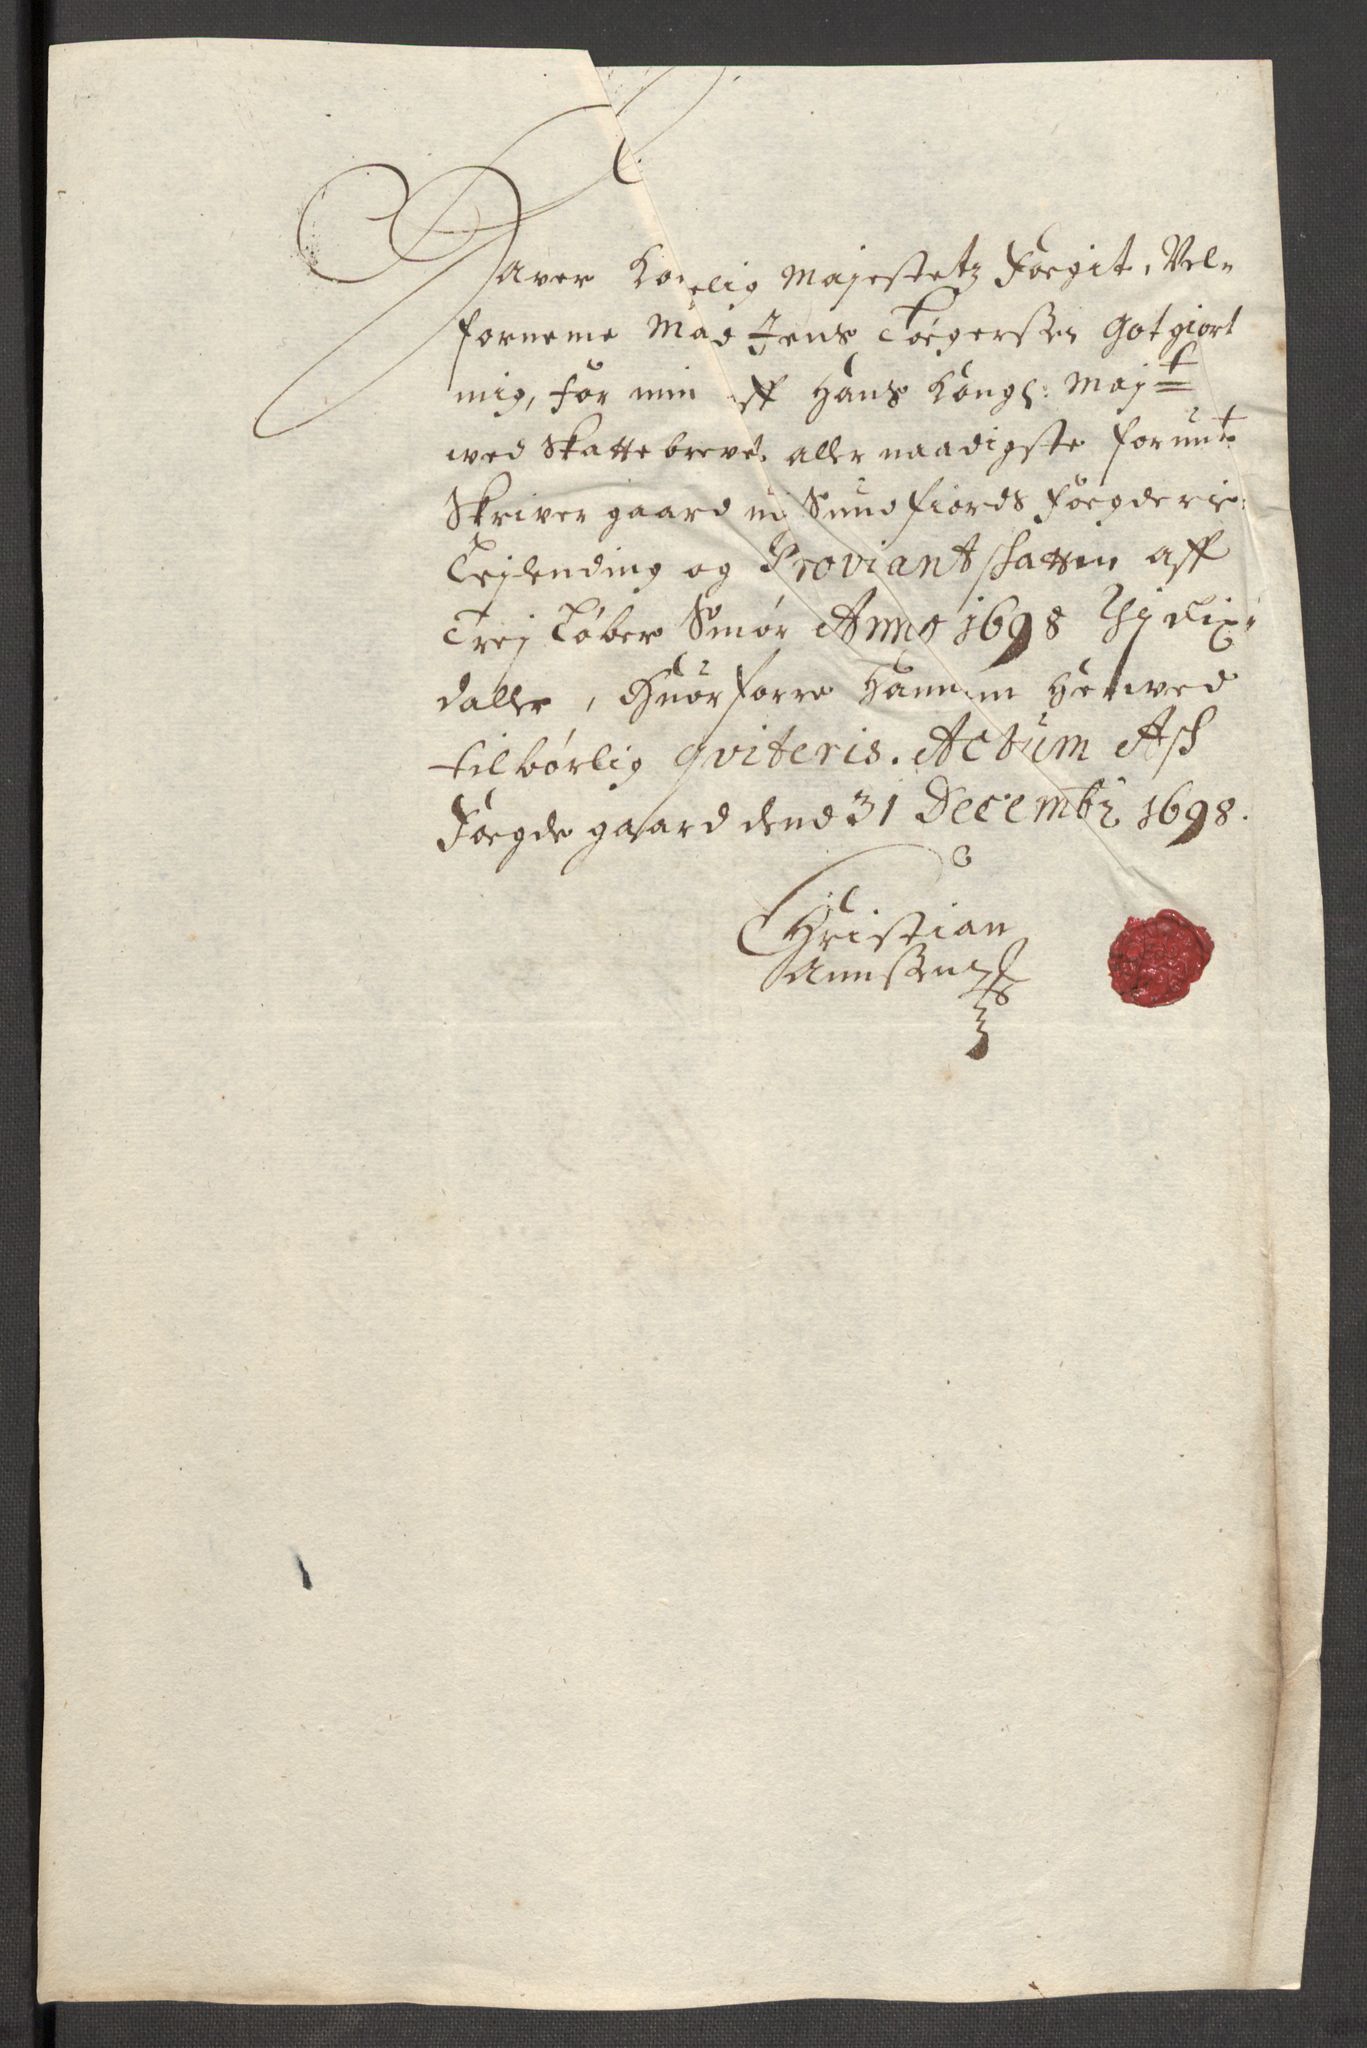 Haver Konelig Majestetz Foegit, Vel-
forneme Mad Jens Toegerssen Gotgiort
mig, for min aff Hans Kongl: Majt
wed Skattebrevet aller naadigste forunte
Skriver gaard udj Sundfiords Foegderie:
Lejlending og Proviant skatten aff
Trej Løber Smør Anno 1698 Thj Rix-
daller, Huorforre Hannem Herwed
tilbørlig qviteris. Actum Ask
Foegde gaard dend 31 Decembr 1698.
Christian
Annssen